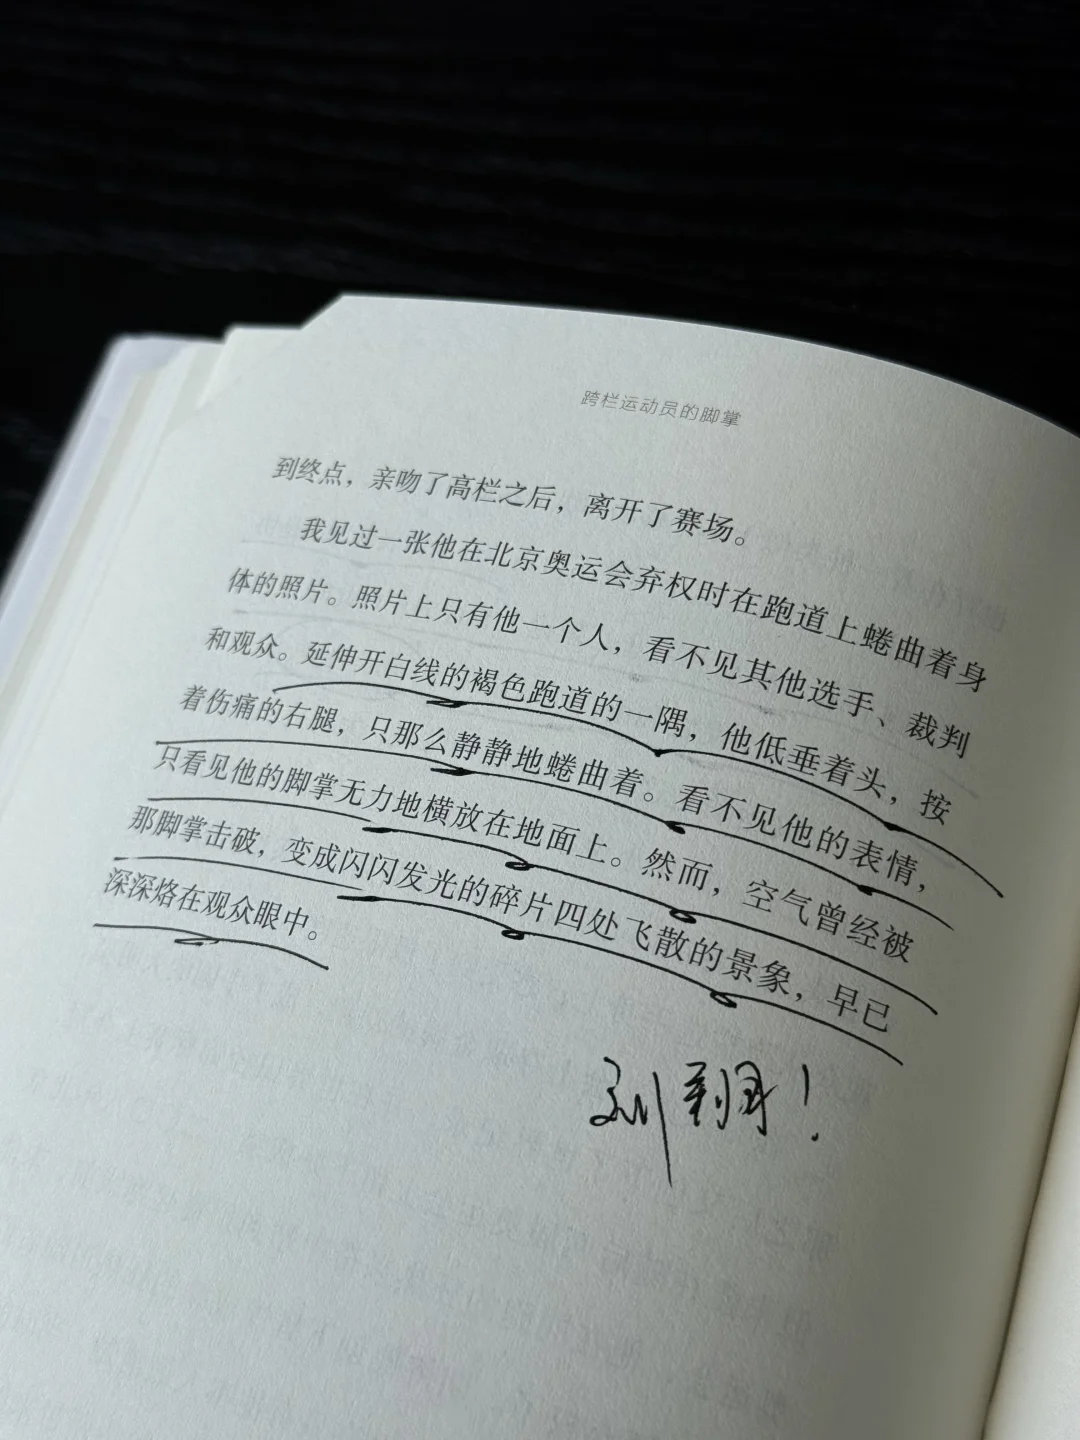 跨栏运动员的脚掌
到终点，亲吻了高栏之后，离开了赛场。
我见过一张他在北京奥运会弃权时在跑道上蜷曲着身
体的照片。照片上只有他一个人，看不见其他选手、裁判
和观众。延伸开白线的褐色跑道的一隅，他低垂着头，按
着伤痛的右腿，只那么静静地蜷曲着。看不见他的表情，
只看见他的脚掌无力地横放在地面上。然而，空气曾经被
那脚掌击破，变成闪闪发光的碎片四处飞散的景象，早已
深深烙在观众眼中。
刘翔！